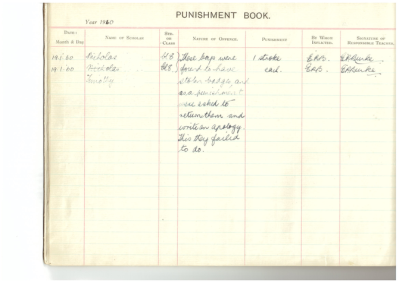 PUNISHMENT BOOK.
Year 1960
DATE: Month & Day
NAME OF SCHOLAR
STD. OR CLASS
NATURE OF OFFENCE.
PUNISHMENT
BY WHOM INFLICTED.
SIGNATURE OF RESPONSIBLE TEACHER.
19.1.60 Nicholas These boys were 1 stroke
19.1.60 Nicholas found to have each.
Timothy stolen badges and
as a punishment
were asked to
return them and
write an apology.
This they failed
to do.